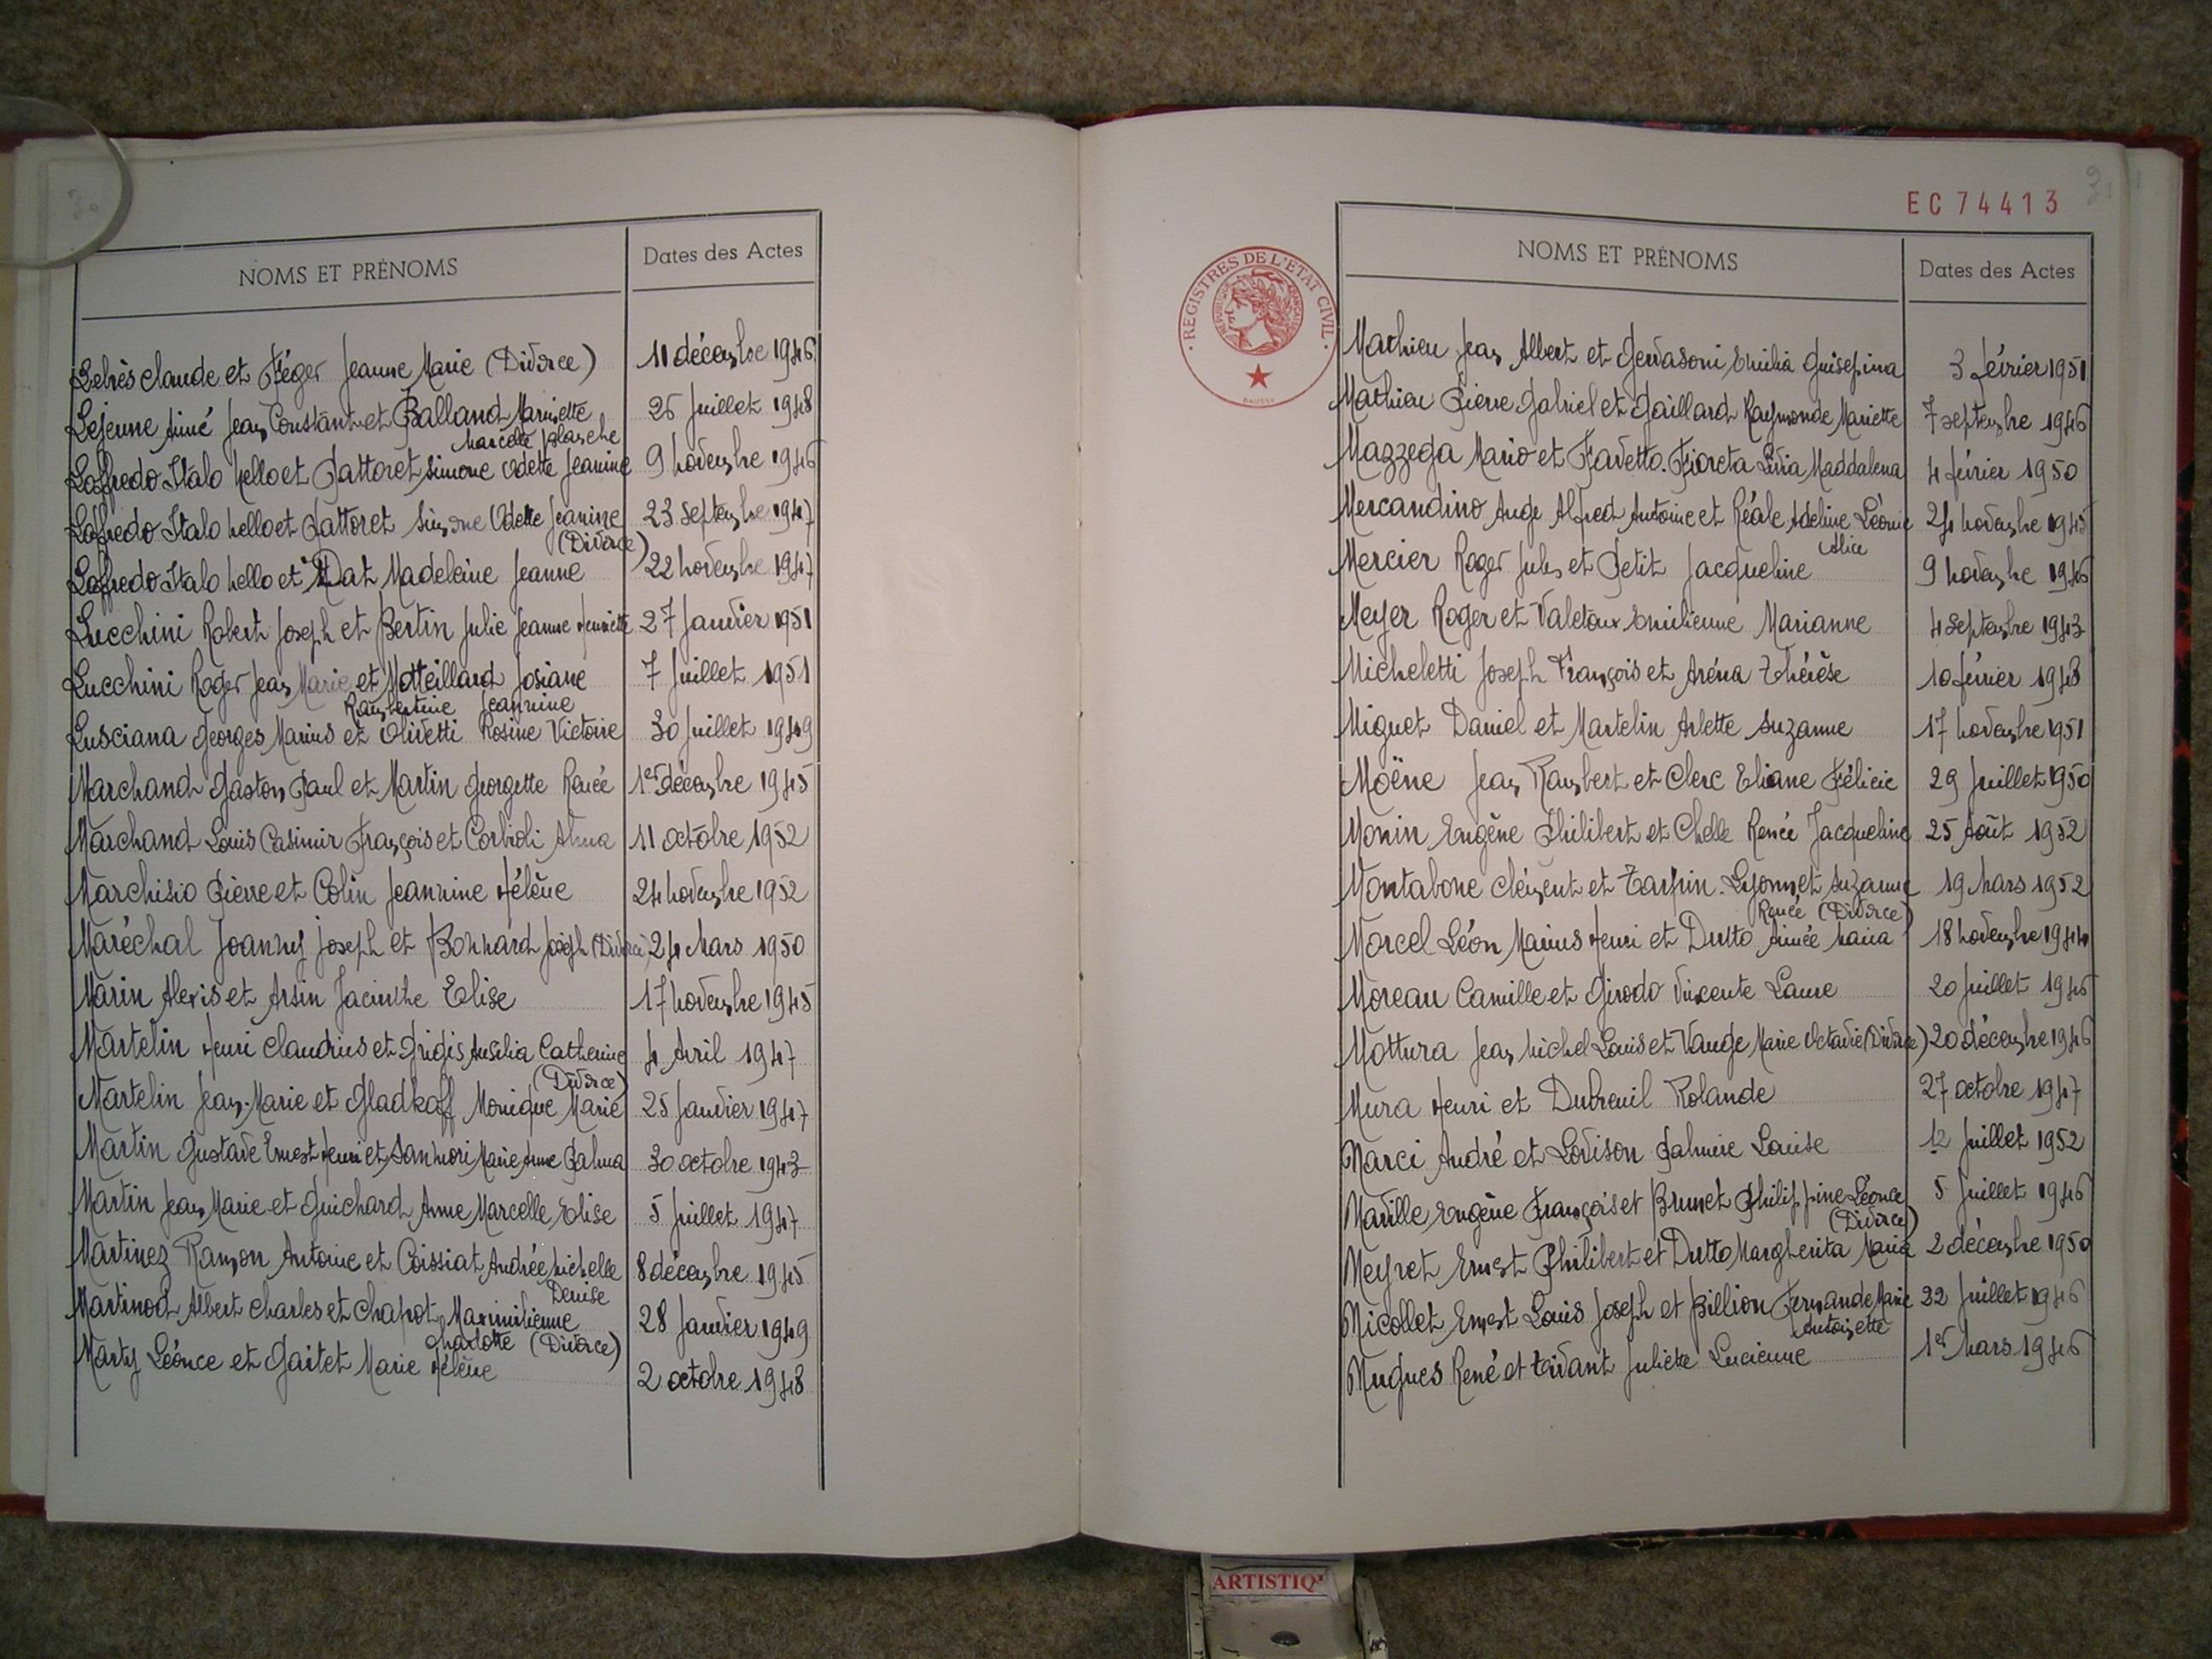 NOMS ET PRÉNOMS
Dates des Actes
Lebrès Claude et Féger Jeanne Marie (Divorce) 11 décembre 1946
Lejeune Aimé Jean Constant et Balland Marinette 26 Juillet 1948
Marcelle Blanche
Loffredo Italo Nello et Pattoret Simone Odette Jeanine 9 Novembre 1946
Loffredo Italo Nello et Pattoret Simone Odette Jeanine 23 Septembre 1947
(Divorce)
Loffredo Italo Nello et Dat Madeleine Jeanne 22 Novembre 1947
Lucchini Robert Joseph et Bertin Julie Jeanne Henriette 27 Janvier 1951
Lucchini Roger Jean Marie et Motteillard Josiane 7 Juillet 1951
Rambertine Jeannine
Lusciana Georges Marius et Olivetti Rosine Victoire 30 Juillet 1949
Marchand Gaston Paul et Martin Georgette Renée 1er décembre 1945
Marchand Louis Casimir François et Corbioli 11 octobre 1952
Marchisio Pierre et Colin Jeannine Hélène 24 Novembre 1952
Maréchal Joanny Joseph et Bonnard Joseph (Divorce) 24 Mars 1950
Marin Alexis et Arsin Jacinthe Elise 17 Novembre 1945
Martelin Henri Claudius et Grigis Ausilia Catherine 4 Avril 1947
(Divorce)
Martelin Jean-Marie et Gladkoff Monique Marie 25 Janvier 1947
Martin Gustave Ernest Henri et Marie Anne Palma 30 octobre 1943
Martin Jean Marie et Guichard Anne Marcelle Elise 5 Juillet 1947
Martinez Ramon Antoine et Coissiat Andrée Michelle 8 décembre 1945
Denise
Martinod Albert Charles et Chapot Maximilienne 28 Janvier 1949
Charlotte (Divorce)
Marty Léonce et Gaitet Marie Hélène 2 octobre 1948
EC 74413
REGISTRES DE L'ETAT CIVIL
RÉPUBLIQUE FRANÇAISE
NOMS ET PRÉNOMS
Dates des Actes
Mathieu Jean Albert et Gervasoni Emilia Guisepina 3 février 1951
Mathieu Pierre Gabriel et Gaillard Raymonde Mariette 7 septembre 1946
Mazzega Mario et Favetto-Fioreta Livia Maddalena 4 février 1950
Mercandino Ange Alfred Antoine et Réale Adeline Léonie 24 Novembre 1945
Alice
Mercier Roger Jules et Petit Jacqueline 9 Novembre 1946
Meyer Roger et Valetoux Emilienne Marianne 4 Septembre 1943
Micheletti Joseph François et Aréna Thérèse 10 février 1948
Miguet Daniel et Martelin Arlette Suzanne 17 Novembre 1951
Moëne Jean Rambert et Clerc Eliane Félicie 29 Juillet 1950
Monin Eugène Philibert et Chelle Renée Jacqueline 25 Août 1952
Montabone Clément et Tarpin-Lyonnet Suzanne 19 Mars 1952
Renée (Divorce)
Morcel Léon Marius Henri et Dutto Aimée Maria 18 Novembre 1944
Moreau Camille et Girodo Vincente Laure 20 Juillet 1946
Mottura Jean Michel Louis et Vauge Marie Octavie (Divorce) 20 décembre 1946
Mura Henri et Dubreuil Rolande 27 octobre 1947
Narci André et Lovison Palmire Louise 12 Juillet 1952
Naville Eugène François et Brunet Philippine Léonce 5 Juillet 1946
(Divorce)
Neyret Ernest Philibert et Dutto Margherita Maria 2 décembre 1950
Nicollet Ernest Louis Joseph et Billion Fernande Marie 22 Juillet 1946
Antoinette
Nugues René et Tivant Juliette Lucienne 1er Mars 1946
ARTISTIQ